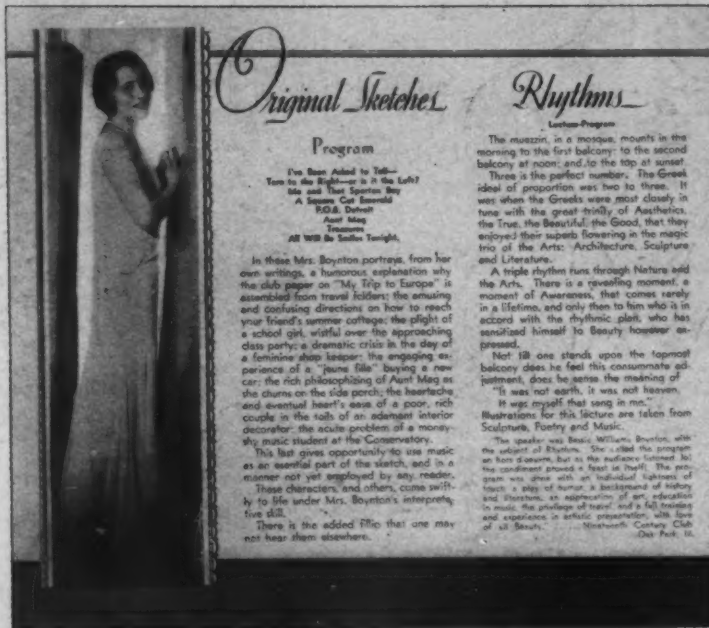 Original Sketches
Program
I've Been Asked to Talk—
Turn to the Right—or is it the Left?
Me and That Spartan Boy
A Square Cut Emerald
F.O.B. Detroit
Aunt Mag
Treasures
All Will Be Smiles Tonight.
In these Mrs. Boynton portrays, from her
own writings, a humorous explanation why
the club paper on "My Trip to Europe" is
assembled from travel folders; the amusing
and confusing directions on how to reach
your friend's summer cottage; the plight of
a school girl, wistful over the approaching
class party; a dramatic crisis in the day of
a feminine shop keeper; the engaging ex-
perience of a "jeune fille" buying a new
car; the rich philosophizing of Aunt Mag as
she churns on the side porch; the heartache
and eventual heart's ease of a poor, rich
couple in the toils of an adamant interior
decorator; the acute problem of a money-
shy music student at the Conservatory.
This last gives opportunity to use music
as an essential part of the sketch, and in a
manner not yet employed by any reader.
These characters, and others, come swift-
ly to life under Mrs. Boynton's interpreta-
tive skill.
There is the added fillip that one may
not hear them elsewhere.
Rhythms
Lecture-Program
The muezzin, in a mosque, mounts in the
morning to the first balcony; to the second
balcony at noon; and to the top at sunset.
Three is the perfect number. The Greek
ideal of proportion was two to three. It
was when the Greeks were most closely in
tune with the great trinity of Aesthetics,
the True, the Beautiful, the Good, that they
enjoyed their superb flowering in the magic
trio of the Arts: Architecture, Sculpture
and Literature.
A triple rhythm runs through Nature and
the Arts. There is a revealing moment, a
moment of Awareness, that comes rarely
in a lifetime, and only then to him who is in
accord with the rhythmic plan, who has
sensitized himself to Beauty however ex-
pressed.
Not till one stands upon the topmost
balcony does he feel this consummate ad-
justment, does he sense the meaning of
"It was not earth, it was not heaven,
It was myself that sang in me."
Illustrations for this lecture are taken from
Sculpture, Poetry and Music.
The speaker was Bessie Williams Boynton, with
the subject of Rhythms. She called the program
an hors d'oeuvre, but as the audience listened to
the condiment proved a feast in itself. The pro-
gram was given with an individual lightness of
touch a play of humor a background of history
and literature, an appreciation of art, education
in music, the privilege of travel, and a full training
and experience in artistic presentation, with love
of all Beauty. Nineteenth Century Club
Oak Park, Ill.